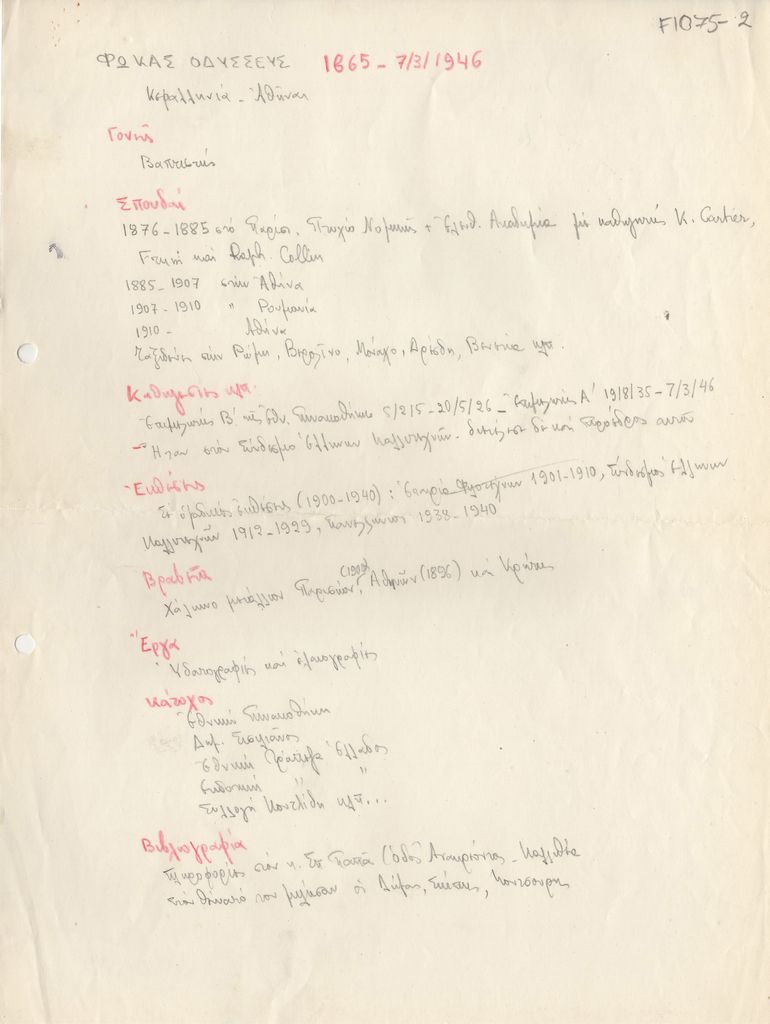 F1075-2
ΦΩΚΑΣ ΟΔΥΣΣΕΥΣ 1865 - 7/3/1946
Κεφαλληνία - Ἀθῆναι
Γονεῖς
Βαπτιστής
Σπουδαί
1876-1885 στό Παρίσι. Πτυχίο Νομικῆς + Ἐλευθ. Ἀκαδημία μέ καθηγητές K. Cartier,
καί Raph. Collin
1885-1907 στήν Ἀθήνα
1907-1910 " Ρουμανία
1910- Ἀθήνα
Ταξίδευσε στήν Ρώμη, Βερολίνο, Μόναχο, Δρέσδη, Βενετία κλπ.
Καθηγεσίες κλπ.
Ἐπιμελητής Β' τῆς Ἐθν. Πινακοθήκης 5/2/5-20/5/26 - Ἐπιμελητής Α' 1918/35 - 7/3/46
- Ἦταν στόν Σύνδεσμο Ἑλλήνων Καλλιτεχνῶν. διετέλεσε δέ καί Πρόεδρος αὐτοῦ
Ἐκθέσεις
Σέ ὁμαδικές ἐκθέσεις (1900-1940): Ἑταιρία Φιλοτέχνων 1901-1910, Σύνδεσμος Ἑλλήνων
Καλλιτεχνῶν 1912-1929, Πανελλήνιος 1938-1940
Βραβεῖα
Χάλκινο μετάλλιον Παρισίων, (1900) Ἀθηνῶν (1896) καί Κρήτης
Ἔργα
Ὑδατογραφίες καί ἐλαιογραφίες
Κάτοχος
Ἐθνική Πινακοθήκη
Ἐθνική Τράπεζα Ἑλλάδος
" "
Συλλογή κλπ...
Βιβλιογραφία
Πληροφορίες ἀπό κ. Σπ. Παππᾶ (ὁδός Ἀνακρέοντος - Καλλιθέα
στόν θάνατό του μίλησαν οἱ